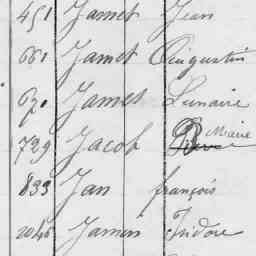 451 Jamet Jean
661 Jamet Augustin
670 Jamet Lunaire
729 Jacob Marie
833 Jan françois
2046 Jamin Isidore